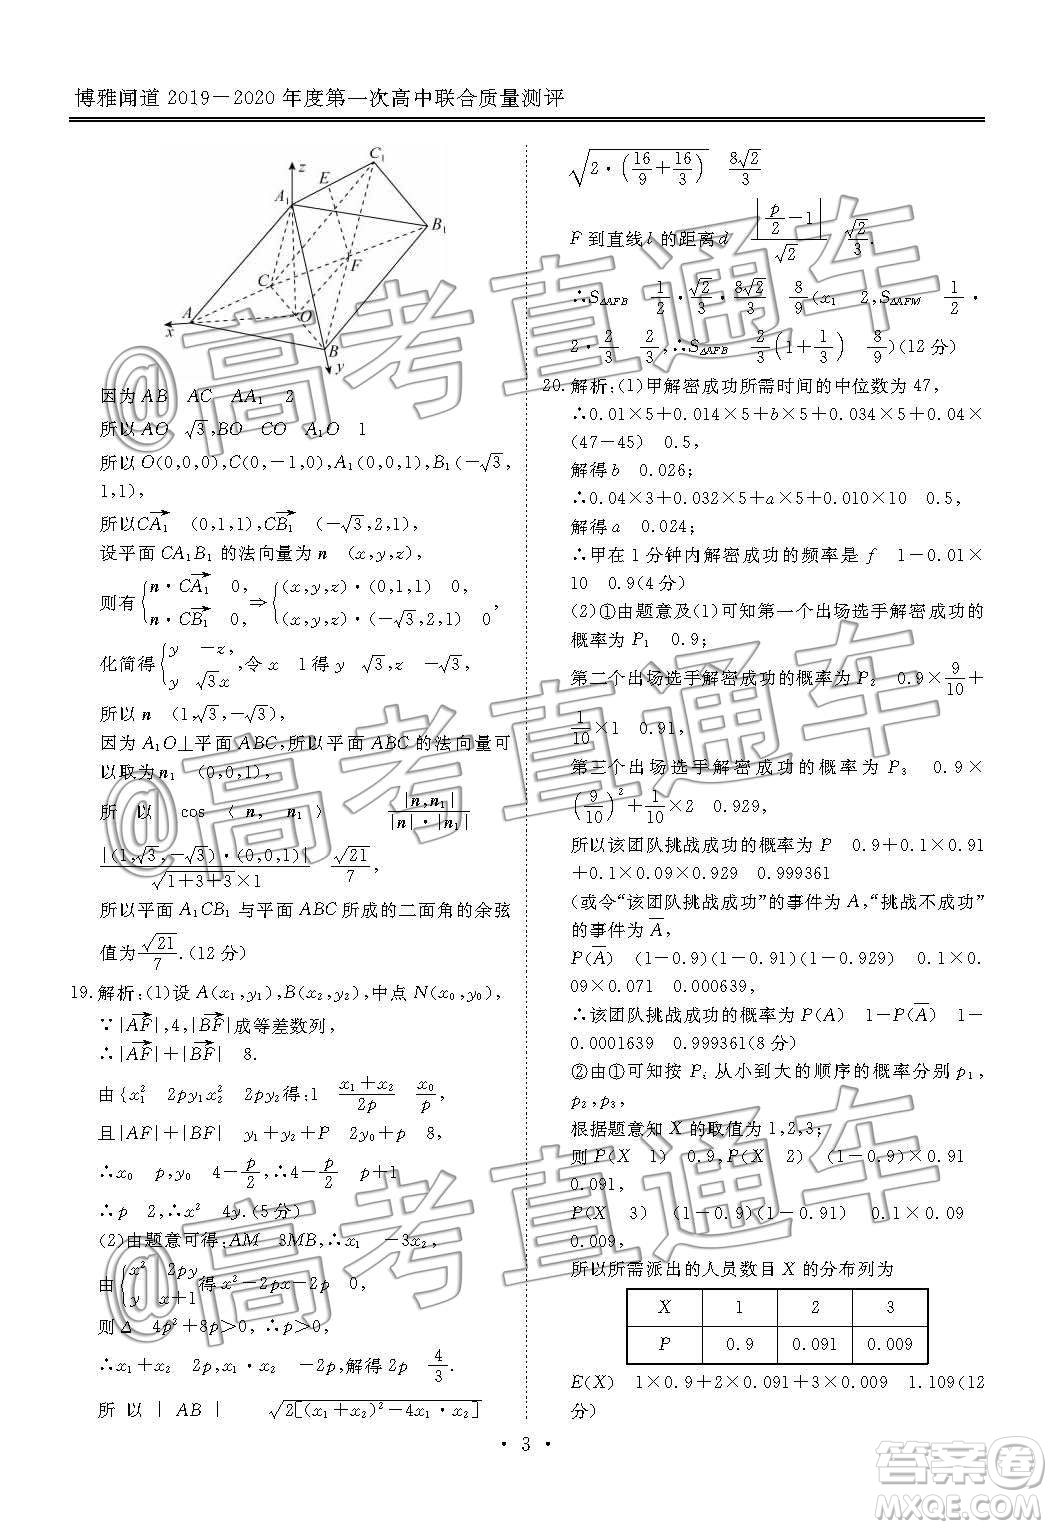 博雅闻道 2019－2020 年度第一次高中联合质量测评
z
C₁
E
A₁
B₁
C
F
A
O
x
B
y
因为 AB　AC　AA₁　2
所以 AO　√3,BO　CO　A₁O　1
所以 O(0,0,0),C(0,－1,0),A₁(0,0,1),B₁(－√3,
1,1),
所以CA₁→　(0,1,1),CB₁→　(－√3,2,1),
设平面 CA₁B₁ 的法向量为 n　(x,y,z),
则有 {n·CA₁→　0, n·CB₁→　0, ⇒ {(x,y,z)·(0,1,1)　0, (x,y,z)·(－√3,2,1)　0 ,
化简得 {y　－z, y　√3x ,令 x　1 得 y　√3,z　－√3,
所以 n　(1,√3,－√3),
因为 A₁O⊥平面 ABC,所以平面 ABC 的法向量可
以取为 n₁　(0,0,1),
所 以　cos 〈 n, n₁ 〉　|n,n₁|/(|n|·|n₁|)
|(1,√3,－√3)·(0,0,1)|/(√(1+3+3)×1)　√21/7,
所以平面 A₁CB₁ 与平面 ABC 所成的二面角的余弦
值为 √21/7.(12 分)
19. 解析:(1)设 A(x₁,y₁),B(x₂,y₂),中点 N(x₀,y₀),
∵|AF→|,4,|BF→|成等差数列,
∴|AF→|+|BF→|　8.
由{x₁²　2py₁x₂²　2py₂得:1　(x₁+x₂)/2p　x₀/p,
且|AF|+|BF|　y₁+y₂+P　2y₀+p　8,
∴x₀　p,y₀　4－p/2,∴4－p/2　p+1
∴p　2,∴x²　4y.(5 分)
(2)由题意可得:AM　3MB,∴x₁　－3x₂,
由 {x²　2py y　x+1 得 x²－2px－2p　0,
则 Δ　4p²+8p>0,∴p>0,
∴x₁+x₂　2p,x₁·x₂　－2p,解得 2p　4/3.
所 以 | AB |　√(2[(x₁+x₂)²－4x₁·x₂])
√(2·(16/9+16/3))　8√2/3
F 到直线 l 的距离 d　|p/2－1|/√2　√2/3.
∴S△AFB　1/2·√2/3·8√2/3　8/9(x₁　2,S△AFM　1/2·
2·2/3　2/3,∴S△AFB　2/3(1+1/3)　8/9)(12 分)
20. 解析:(1)甲解密成功所需时间的中位数为 47,
∴0.01×5+0.014×5+b×5+0.034×5+0.04×
(47－45)　0.5,
解得 b　0.026;
∴0.04×3+0.032×5+a×5+0.010×10　0.5,
解得 a　0.024;
∴甲在 1 分钟内解密成功的频率是 f　1－0.01×
10　0.9(4 分)
(2)①由题意及(1)可知第一个出场选手解密成功的
概率为 P₁　0.9;
第二个出场选手解密成功的概率为 P₂　0.9×9/10+
1/10×1　0.91,
第三个出场选手解密成功的概率为 P₃　0.9×
(9/10)²+1/10×2　0.929,
所以该团队挑战成功的概率为 P　0.9+0.1×0.91
+0.1×0.09×0.929　0.999361
(或令“该团队挑战成功”的事件为 A,“挑战不成功”
的事件为 A̅,
P(A̅)　(1－0.9)(1－0.91)(1－0.929)　0.1×
0.09×0.071　0.000639,
∴该团队挑战成功的概率为 P(A)　1－P(A̅)　1－
0.0001639　0.999361(8 分)
②由①可知按 Pᵢ 从小到大的顺序的概率分别 p₁,
p₂,p₃,
根据题意知 X 的取值为 1,2,3;
则 P(X　1)　0.9,P(X　2)　(1－0.9)×0.91
0.091,
P(X　3)　(1－0.9)(1－0.91)　0.1×0.09
0.009,
所以所需派出的人员数目 X 的分布列为
X　1　2　3
P　0.9　0.091　0.009
E(X)　1×0.9+2×0.091+3×0.009　1.109(12
分)
· 3 ·
@高考直通车
@高考直通车
@高考直通车
答案卷
MXQE.COM